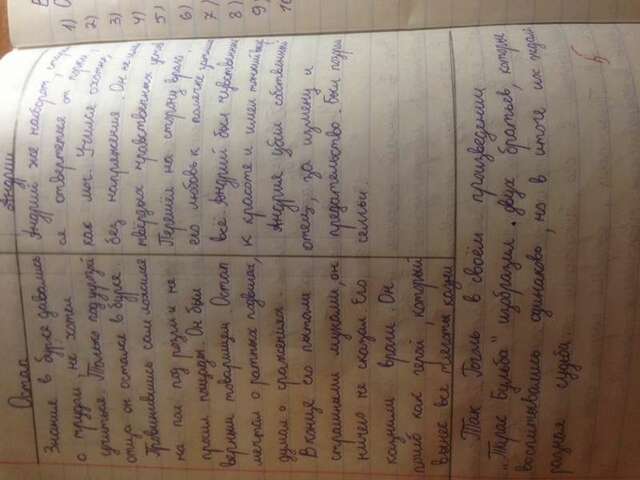 Остап
Знания в бурсе давались
с трудом, не хотел
учиться. Только под угрозой
отца он остался в бурсе.
Провинившись сам ложился
на пол под розги и не
просил пощады. Он был
верным товарищем. Остап
мечтал о ратных подвигах,
думал о сражениях.
В конце его пытали
страшными муками, он
ничего не сказал. Его
казнили враги. Он
погиб как герой, который
вынес все тяготы казни
Андрий
Андрий же наоборот,
ся отвертеться от порки,
как мог. Учился охотно,
без напряжения. Он не имел
твёрдых нравственных
Перешёл на сторону врага.
его любовь к полячке затмила
всё. Андрий был чувственным
к красоте и имел тонкий вкус
Андрия убил собственный
отец, за измену и
предательство. Был позором
семьи.
Так Гоголь в своём произведении
„Тарас Бульба" изобразил двух братьев, которые
воспитывались одинаково, но в итоге их ждала
разная судьба.
5
1)
2)
3)
4)
5)
6)
7)
8)
9)
10